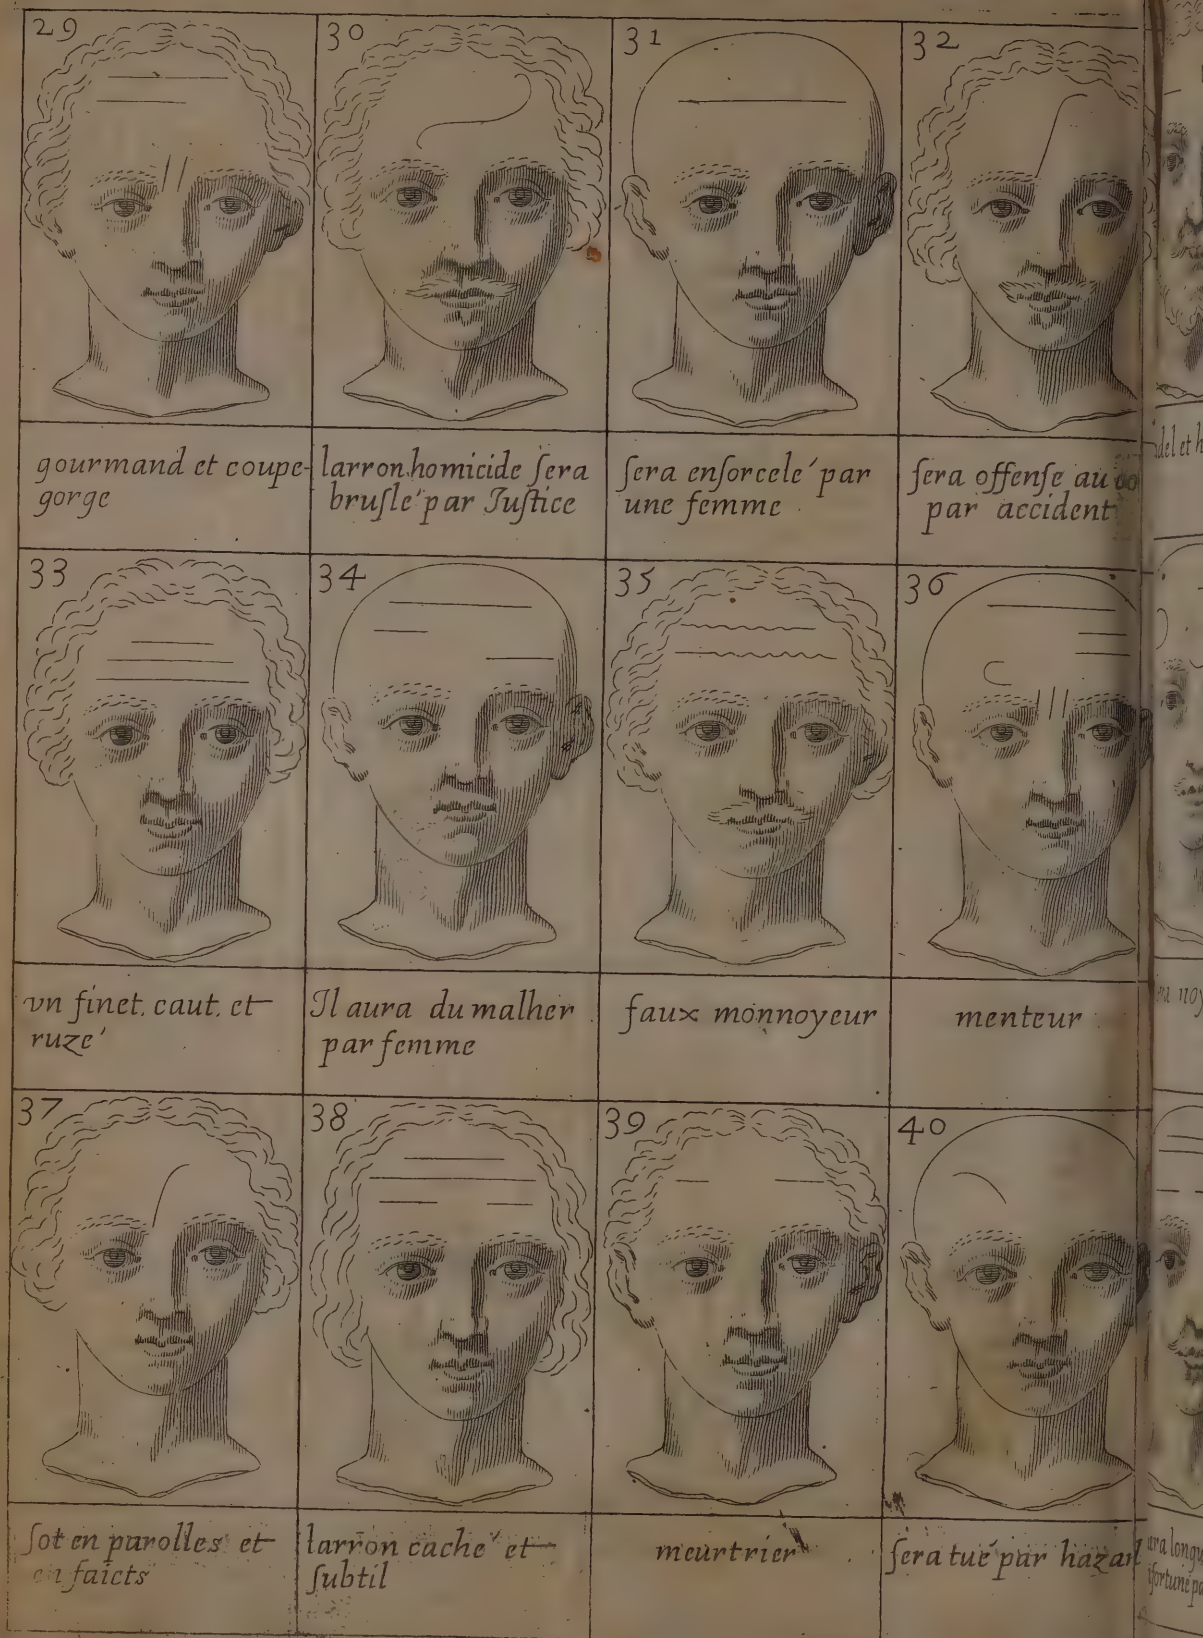 29
30
31
32
gourmand et coupe-
gorge
larron, homicide ſera
bruſle' par Juſtice
ſera enſorcele' par
une femme
ſera offenſe au
par accident
33
34
35
36
vn finet. caut. et
ruze'
Il aura du malher
par femme
faux monnoyeur
menteur
37
38
39
40
ſot en parolles et
en faicts
larron cache' et
ſubtil
meurtrier
ſera tué par hazar